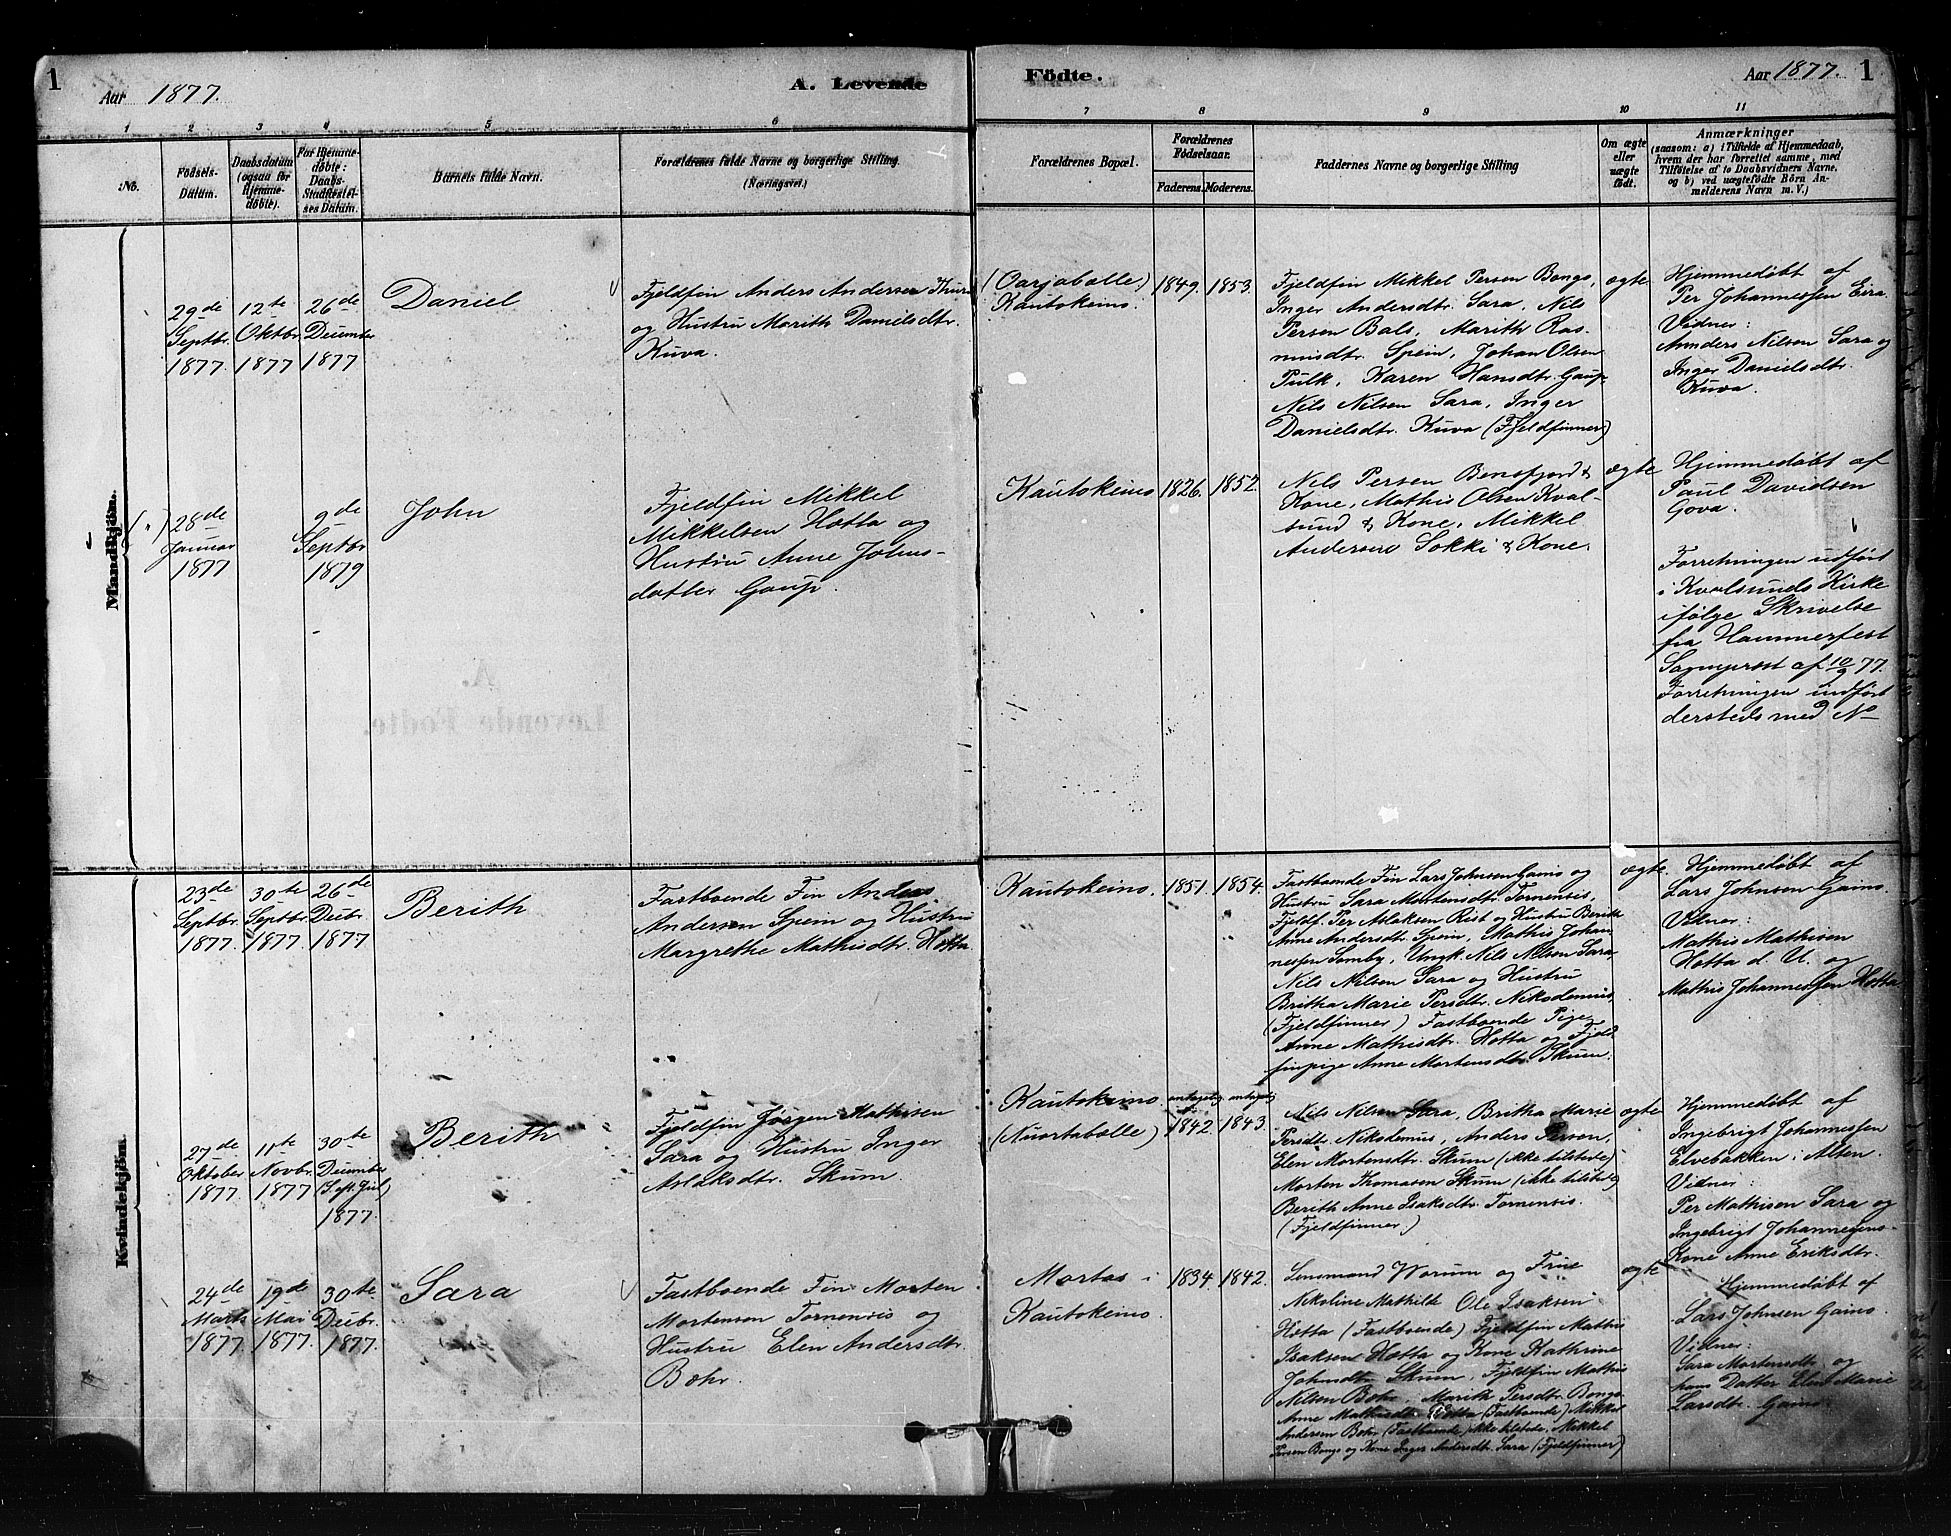 1
Aar 1877.
A. Levende
Födte.
Aar 1877. 1
1 2 3 4 5 6 7 8 9 10 11
No.
Födsels-
Datum.
Daabsdatum
(ogsaa for
Hjemme-
døbte).
For Hjemme-
døbte:
Daabs-
Stadfæstel-
ses Datum.
Barnets fulde Navn.
Forældrenes fulde Navne og borgerlige Stilling.
(Næringsvei.)
Forældrenes Bopæl.
Forældrenes
Födselsaar.
Faderens. Moderens.
Faddernes Navne og borgerlige Stilling
Om ægte
eller
uægte
født.
Anmærkninger
(saasom: a) i Tilfælde af Hjemmedaab,
hvem der har forrettet samme, med
Tilføielse af to Daabsvidners Navne,
og b) ved uægtefödte Börn An-
melderens Navn m. V.)
Mandkjön.
29de
Septbr.
1877.
12te
Oktbr.
1877
26de
December
1877
Daniel
Fjeldfin Anders Andersen Thuri
og Hustru Marith Danielsdtr.
Kuva.
(Oarjabælle)
Kautokeino.
1849. 1853.
Fjeldfin Mikkel Persen Bongo,
Inger Andersdtr. Sara, Nils
Persen Bals, Marith Ras-
musdtr. Spein, Johan Olsen
Pulk, Karen Hansdtr. Gaup,
Nils Nilsen Sara, Inger
Danielsdtr. Kuva (Fjeldfinner)
ægte
Hjemmedøbt af
Per Johannessen Eira.
Vidner:
Annders Nilsen Sara og
Inger Danielsdtr.
Kuva.
(")
28de
Januar
1877
9de
Septbr
1879
John
Fjeldfin Mikkel
Mikkelsen Hætta og
Hustru Anne Johns-
datter Gaup.
Kautokeino
1826. 1852.
Nils Persen Bensfjord &
Kone, Mathis Olsen Kval-
sund & Kone, Mikkel
Andersen Sokki & Kone.
ægte
Hjemmedøbt af
Paul Davidsen
Gova.
Forretningen udført
i Kvalsunds Kirke
ifølge Skrivelse
fra Hammerfest
Sognepræst af 10/9 77.
Forretningen indført
dersteds med No
Kvindekjön.
23de
Septbr.
1877.
30te
Septbr.
1877.
26de
Decbr.
1877
Berith
Fastboende Fin Anders
Andersen Spein og Hustru
Margrethe Mathisdtr. Hætta
Kautokeino.
1851. 1854.
Fastboende Fin Lars Johnsen Gaino og
Hustru Sara Mortensdtr. Tornensis,
Fjeldf. Per Aslaksen Rist og Hustru Berith
Anne Andersdtr. Spein, Mathis Johan
nessen Somby, Ungk. Nils Nilsen Sara
Nils Nilsen Sara og Hustru
Britha Marie Persdtr. Nikodemus.
(Fjeldfinner) Fastboende Pige
Anne Mathisdtr. Hotta og Fjeld
finpige Anne Mortensdtr. Skum.
ægte.
Hjemmedøbt af
Lars Johnsen Gaino.
Vidner:
Mathis Mathisen
Hotta d. U. og
Mathis Johannessen Hotta
27de
Oktober
1877.
11te
Novbr.
1877
30te
December
(S. eft. Jul)
1877.
Berith
Fjeldfin Jörgen Mathisen
Sara og Hustru Inger
Aslaksdtr. Skum.
Kautokeino
(Nuortabælle)
antagelig antagelig
1842. 1843.
Nils Nilsen Sara, Britha Marie
Persdtr. Nikodemus, Anders Persen,
Elen Mortensdtr. Skum (ikke tilstede)
Morten Thomasen Skum (ikke tilstede)
Berith Anne Isaksdtr. Tornensis.
(Fjeldfinner.)
ægte
Hjemmedøbt af
Ingebrigt Johannessen
Elvebakken i Alten.
Vidner:
Per Mathisen Sara og
Ingebrigt Johannessens
Kone Anne Eriksdtr.
24de
Marts
1877.
19de
Mai
1877.
30te
Decbr.
1877.
Sara
Fastboende Fin Morten
Mortensen Tornensis og
Hustru Elen Andersdtr.
Bæhr.
Mortas i
Kautokeino.
1834. 1842.
Lensmand Worum og Frue
Nikoline Mathilde Ole Isaksen
Hætta (Fastboende) Fjeldfin Mathis
Isaksen Hætta og Kone Kathrine
Johnsdtr. Skum, Fjeldfin Mathis
Nilsen Bæhr, Marith Persdtr. Bongo
Anne Mathisdtr. Hotta (Fastboende) Mikkel
Andersen Bæhr (Fastboende) ikke tilstede. Mikkel
Persen Bongo og Kone Inger Andersdtr. Sara (Fjeldfinner)
ægte
Hjemmedøbt af
Lars Johnsen Gaino.
Vidner:
Sara Mortensdtr. og
hans Datter Elen Marie
Larsdtr. Gaino.